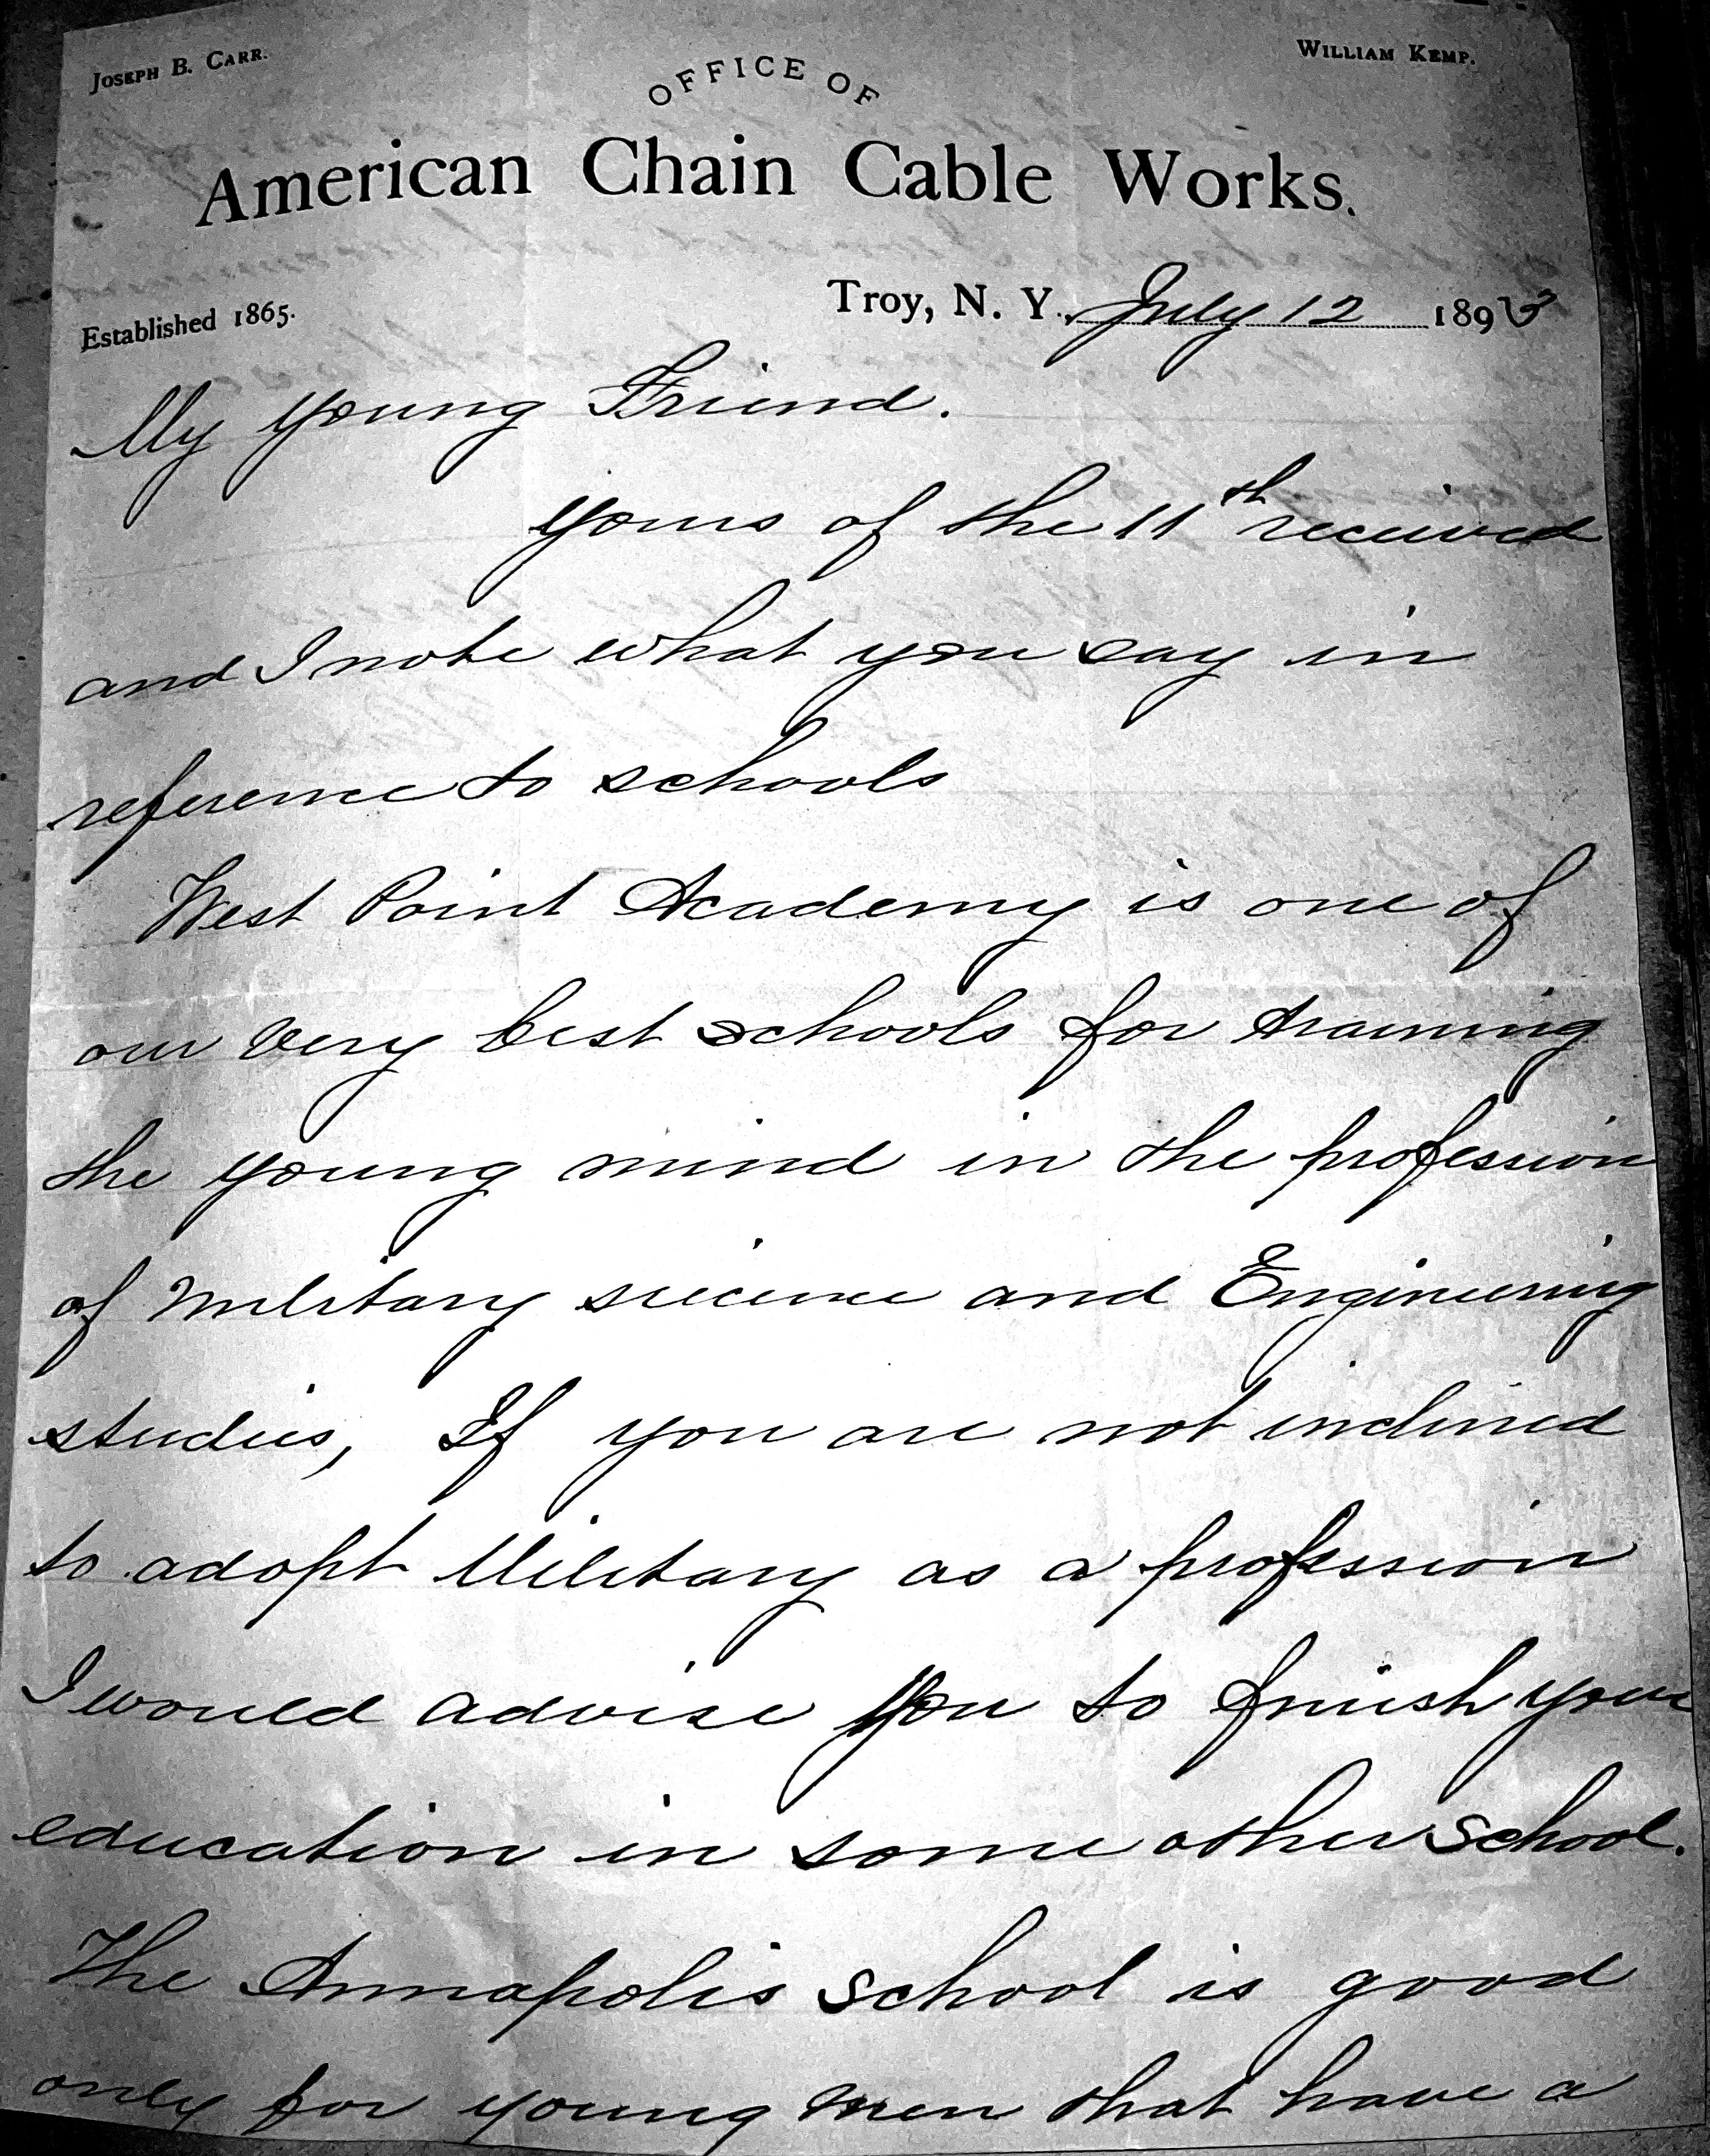 JOSEPH B. CARR.
WILLIAM KEMP.
OFFICE OF
American Chain Cable Works.
Established 1865.
Troy, N. Y., July 12 1893
My Young Friend.
Yours of the 11th received
and I note what you say in
reference to schools
West Point Academy is one of
our very best schools for training
the young mind in the profession
of Military science and Engineering
studies, If you are not inclined
to adopt Military as a profession
I would advise you to finish your
education in some other School.
The Annapolis School is good
only for young men that have a